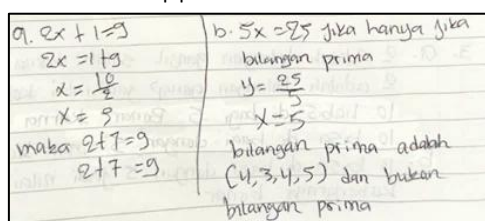 a. 2x + 1 = 9
2x = 1+9
x = 10/2
x = 5
maka 2+7 = 9
2+7 = 9
b. 5x = 25 jika hanya jika
bilangan prima
y = 25/5
x = 5
bilangan prima adalah
(4,3,4,5) dan bukan
bilangan prima